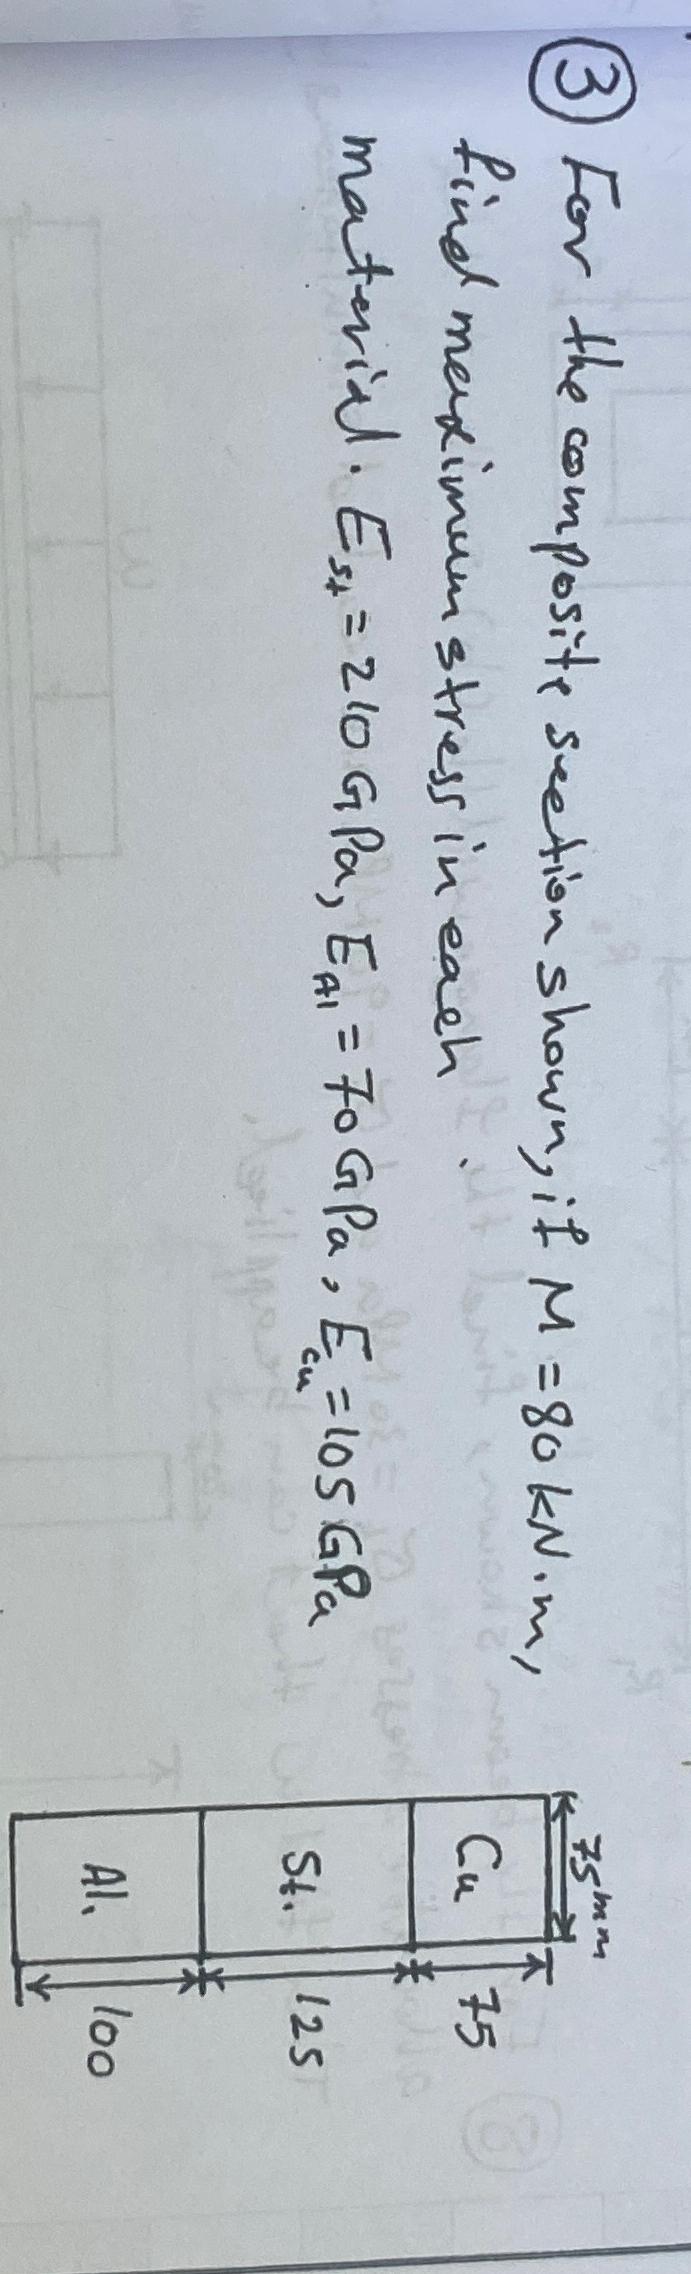 3 For the composite section shown, if M = 80 kN.m,
find maximum stress in each
material. Est = 210 GPa, EAl = 70 GPa, Ecu = 105 GPa
75mm
Cu 75
St. 125
Al. 100